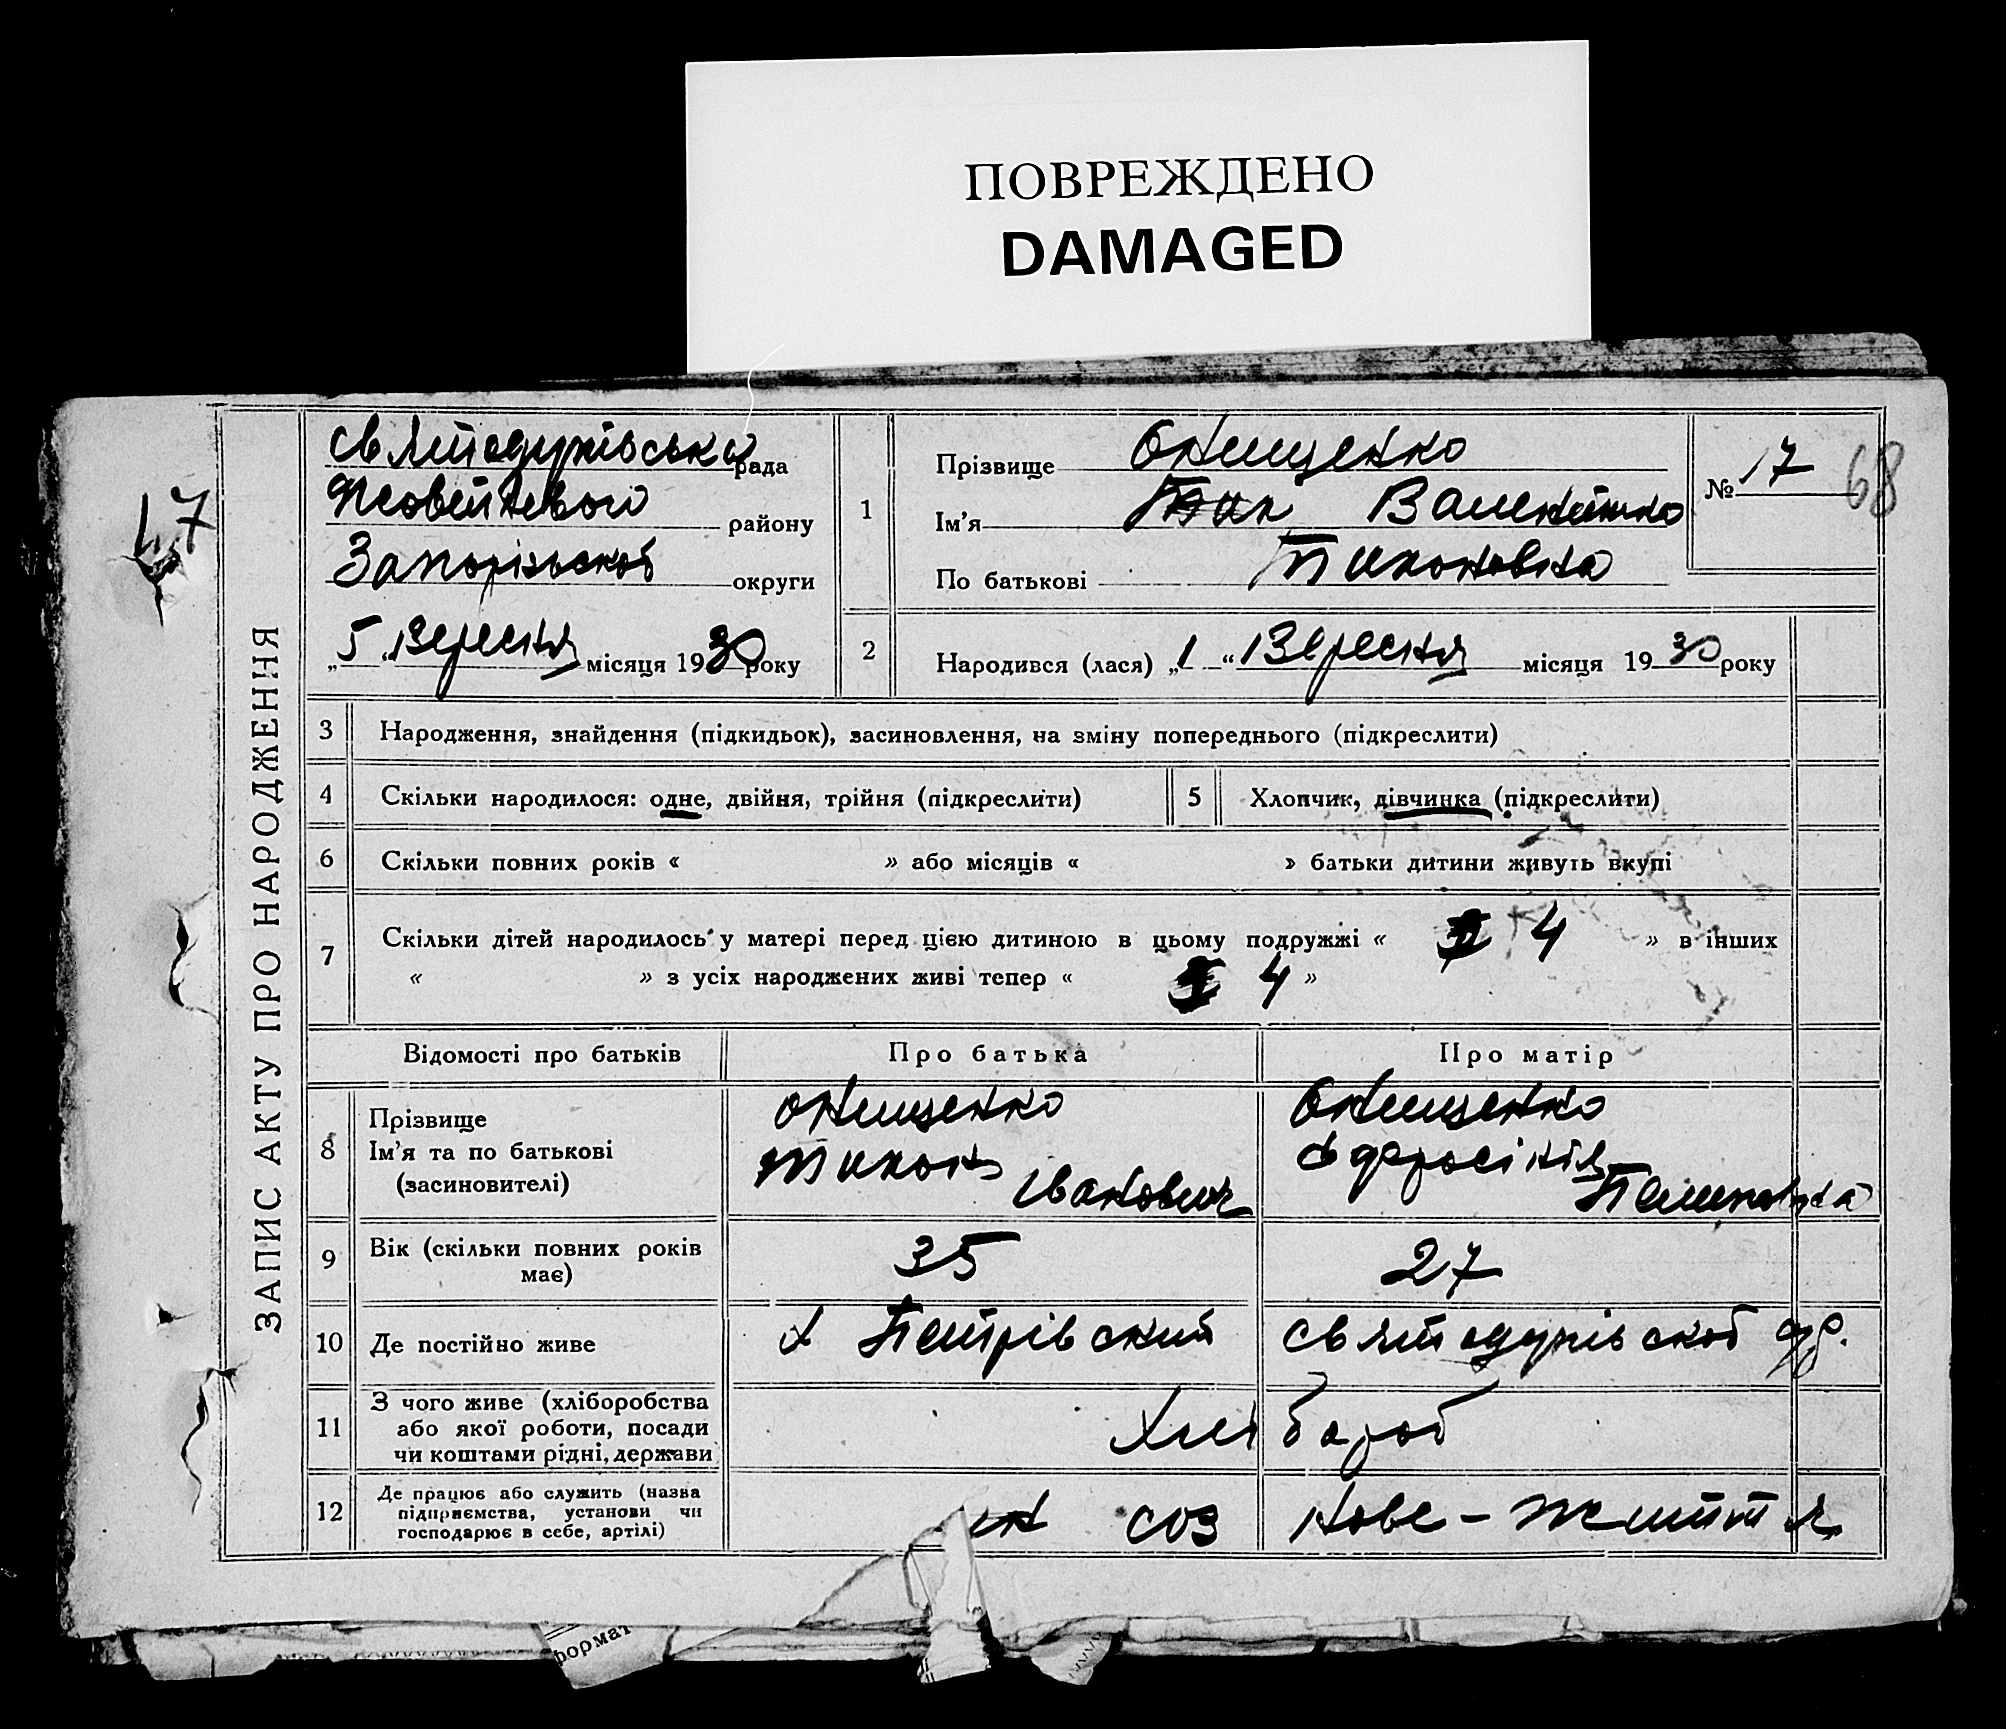 ПОВРЕЖДЕНО
DAMAGED
рада
району
Запорізької округи
„5“ Вересня місяця 1930 року
1
Прізвище Онищенко
Ім'я
По батькові Тихоновна
№ 17
68
47
2
Народився (лася) „1“ Вересня місяця 1930 року
ЗАПИС АКТУ ПРО НАРОДЖЕННЯ
3 Народження, знайдення (підкидьок), засиновлення, на зміну попереднього (підкреслити)
4 Скільки народилося: одне, двійня, трійня (підкреслити)
5 Хлопчик, дівчинка (підкреслити)
6 Скільки повних років « » або місяців « » батьки дитини живуть вкупі
7 Скільки дітей народилось у матері перед цією дитиною в цьому подружжі « 4 » в інших
« » з усіх народжених живі тепер « 4 »
Відомості про батьків Про батька Про матір
8 Прізвище
Ім'я та по батькові
(засиновителі)
Онищенко
Тихон
Іванович
Онищенко
9 Вік (скільки повних років
має)
35 27
10 Де постійно живе
х Петрівский
11 З чого живе (хліборобства
або якої роботи, посади
чи коштами рідні, держави
Хлібороб
12 Де працює або служить (назва
підприємства, установи чи
господарює в себе, артілі)
СОЗ Нове-Життя
формат